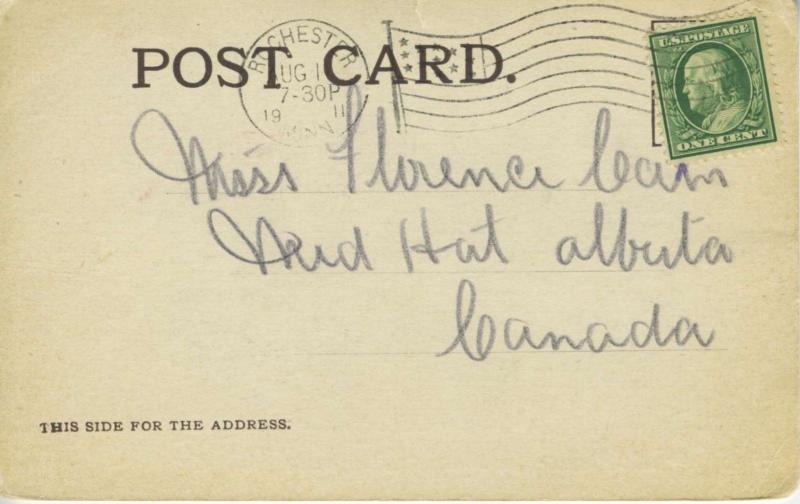 POST CARD.
ROCHESTER
AUG 1
7-30P
19 11
MINN
U.S. POSTAGE
ONE CENT
Miss Florence Cain
Med Hat Alberta
Canada
THIS SIDE FOR THE ADDRESS.